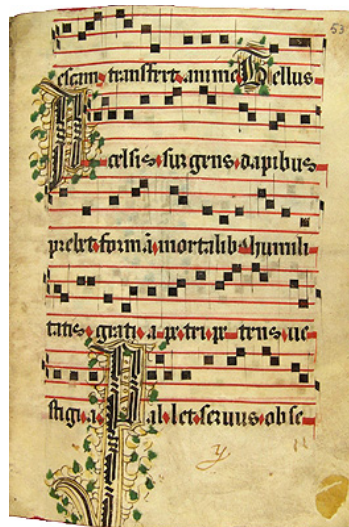 53
escam transfert anime Tellus
A celsis surgens dapibus
prebet formā mortalib humili
tatis grati a pe tri pe tens ue
stigi a Pal let seruus obse